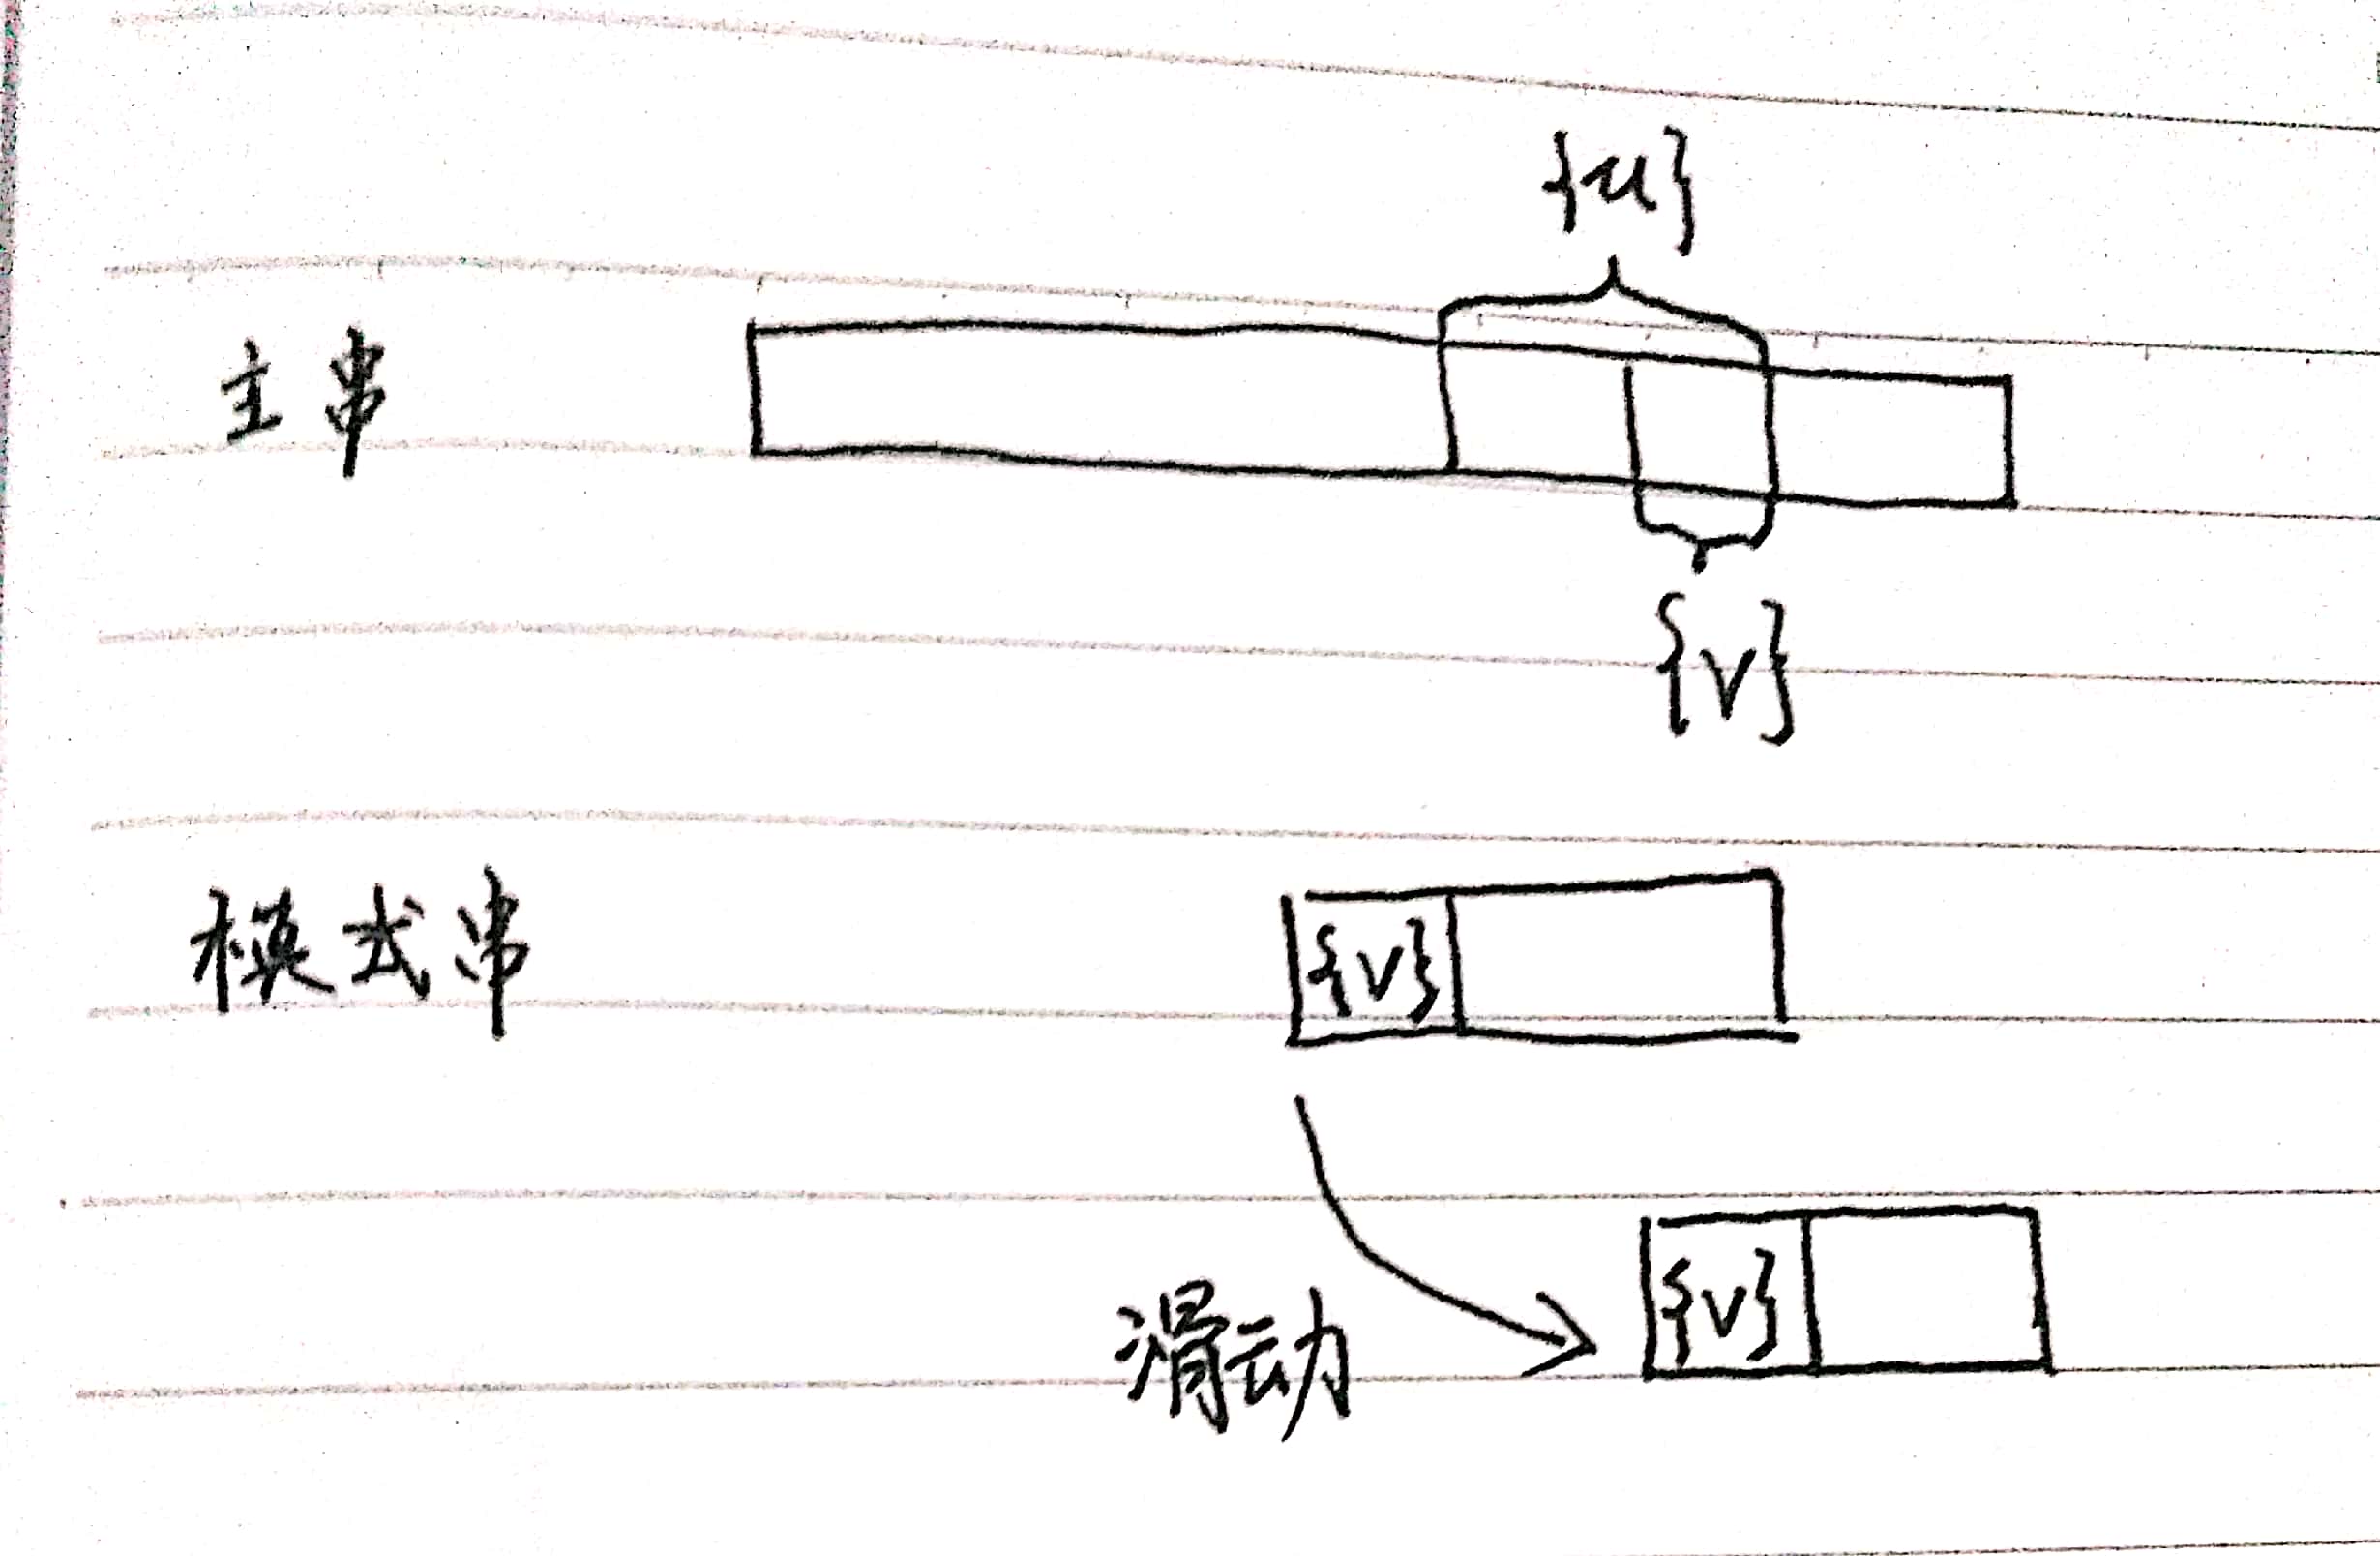 {u}
主串
{v}
模式串 {v}
滑动 {v}